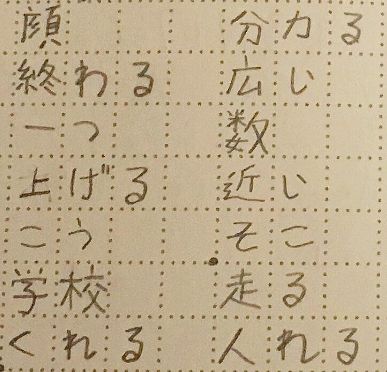 顔 分カる
終わる 広い
一つ 数
上げる 近い
こう そこ
学校 走る
くれる 人れる